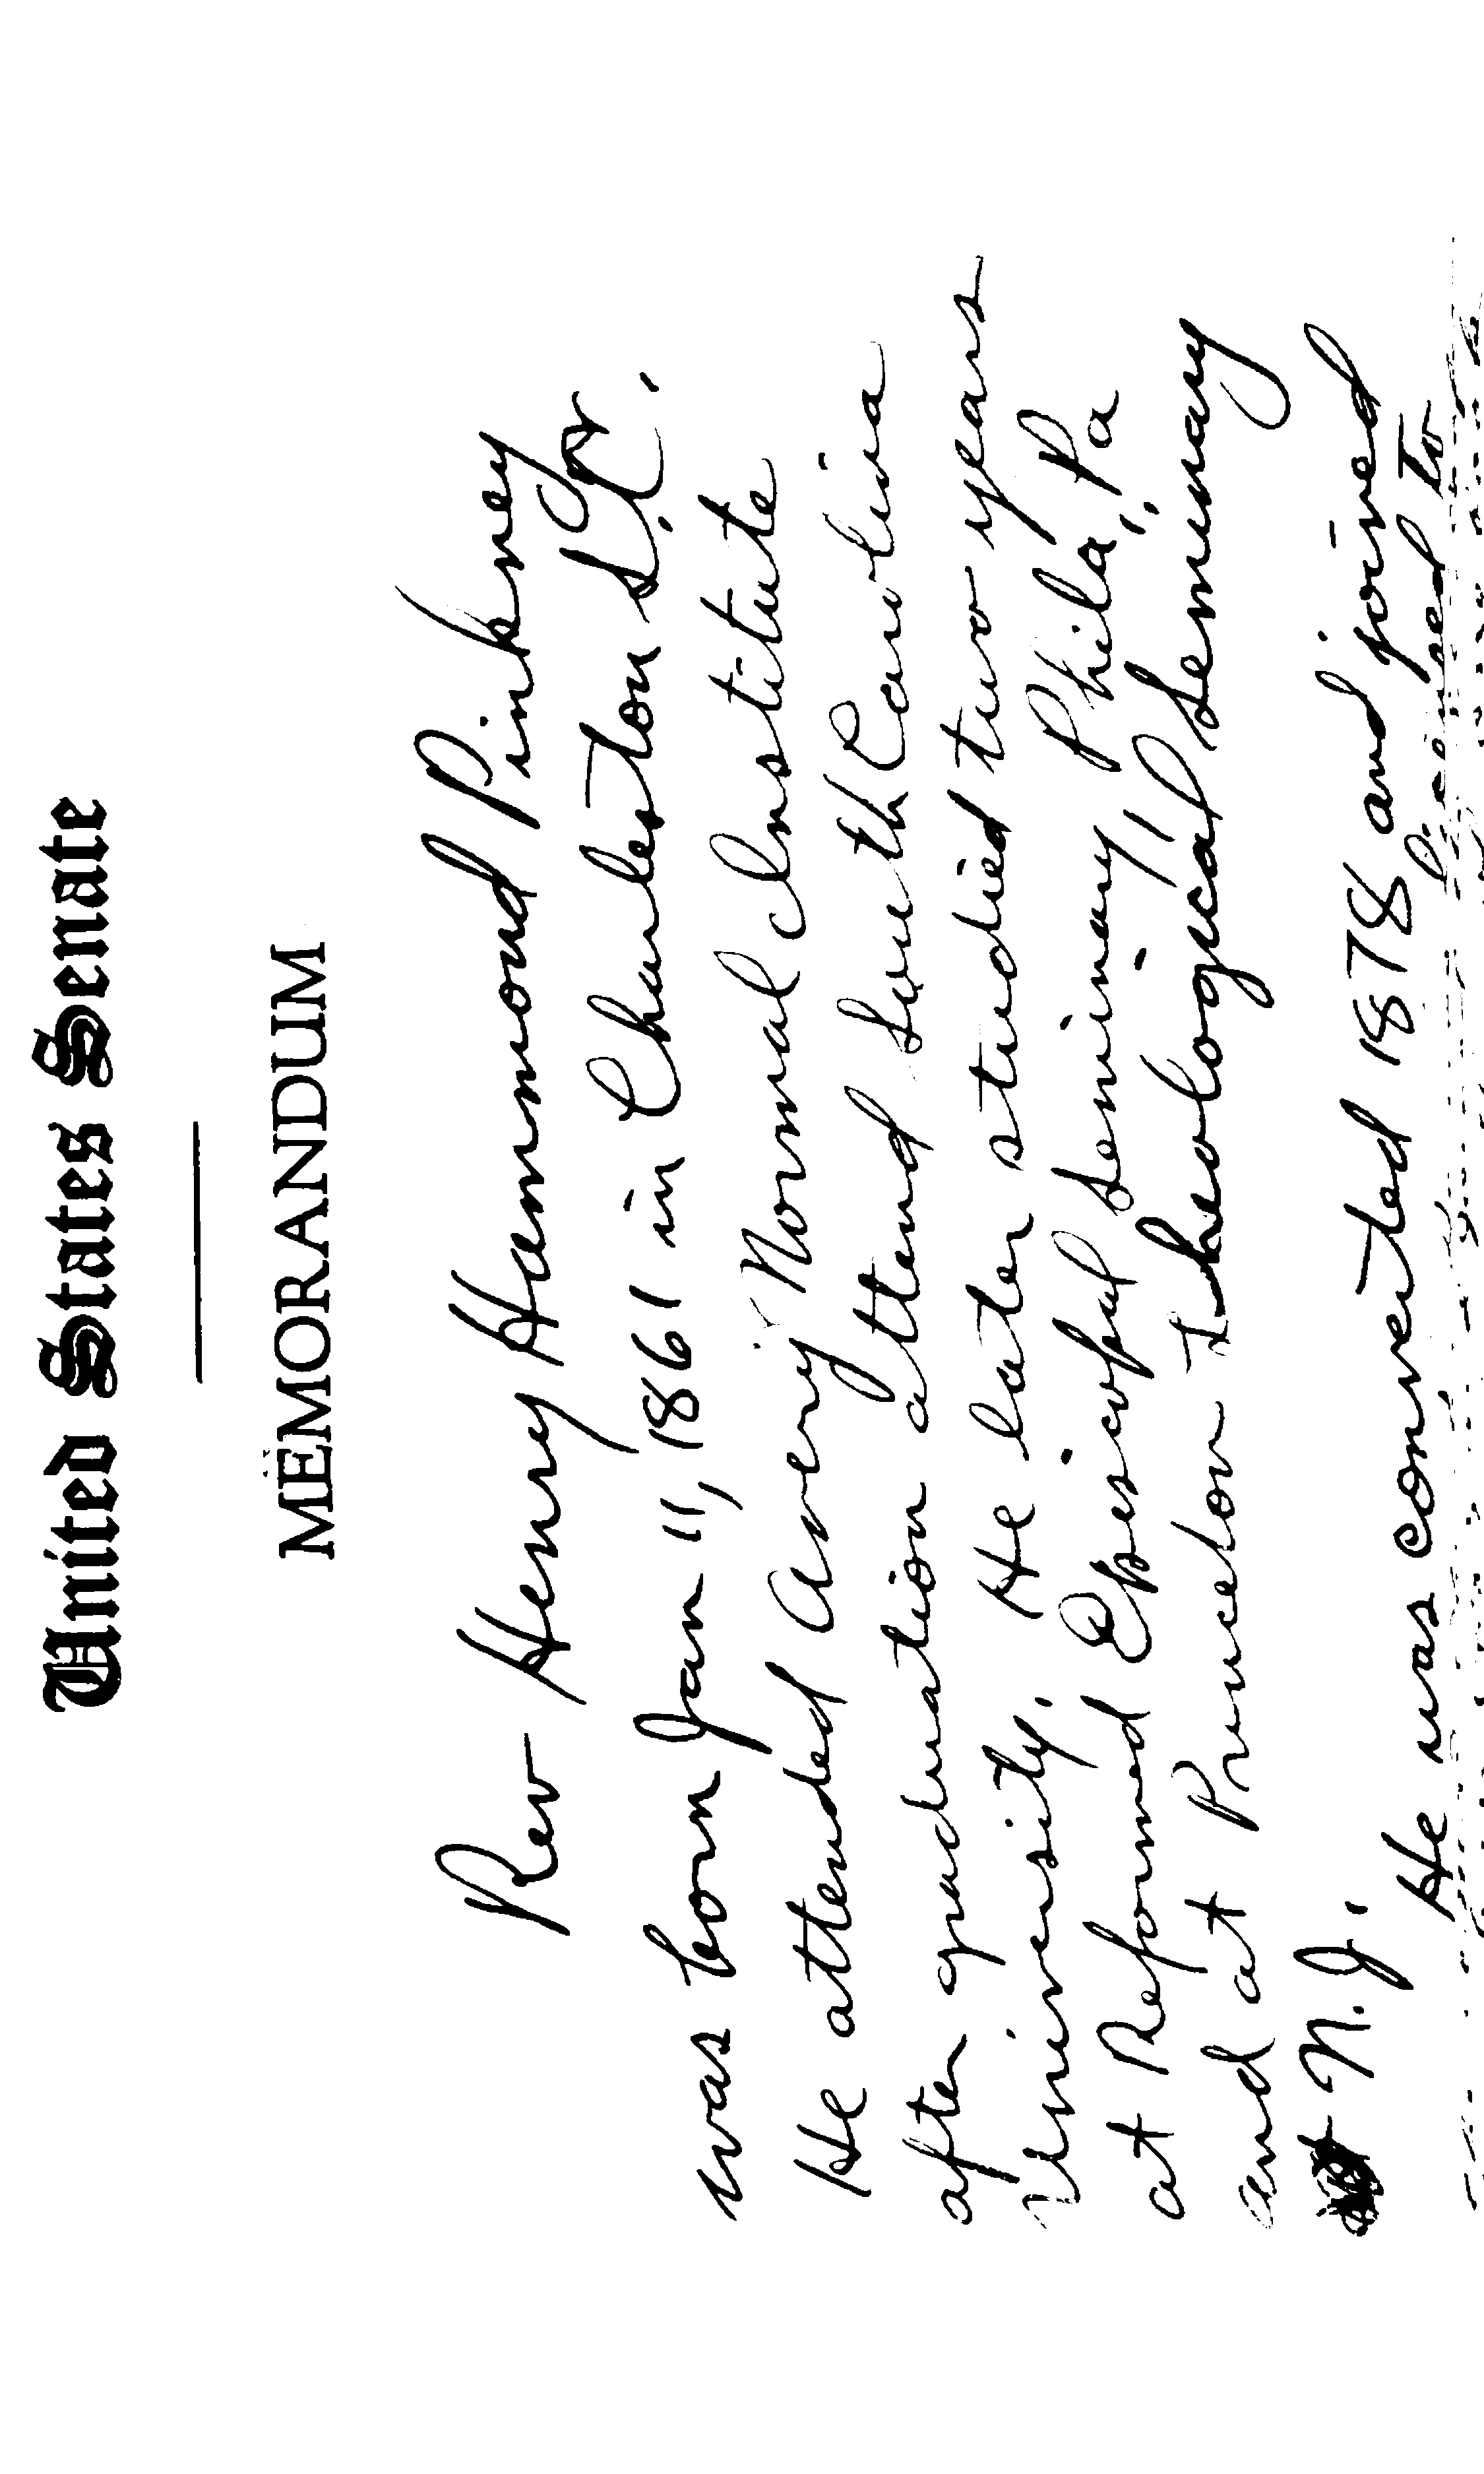 United States Senate
MEMORANDUM
Rev Henry Hammond Pinkney
was born Jan 11, 1861 in Charleston S.C.
He attended Avery Normal Institute
after graduation attend South Carolina
University. He later studied two years
at Reformed Episcopal Seminary, Phila", Pa
and at Princeton Theological Seminary
N.J.
He was converted 1878 and joined
licensed to